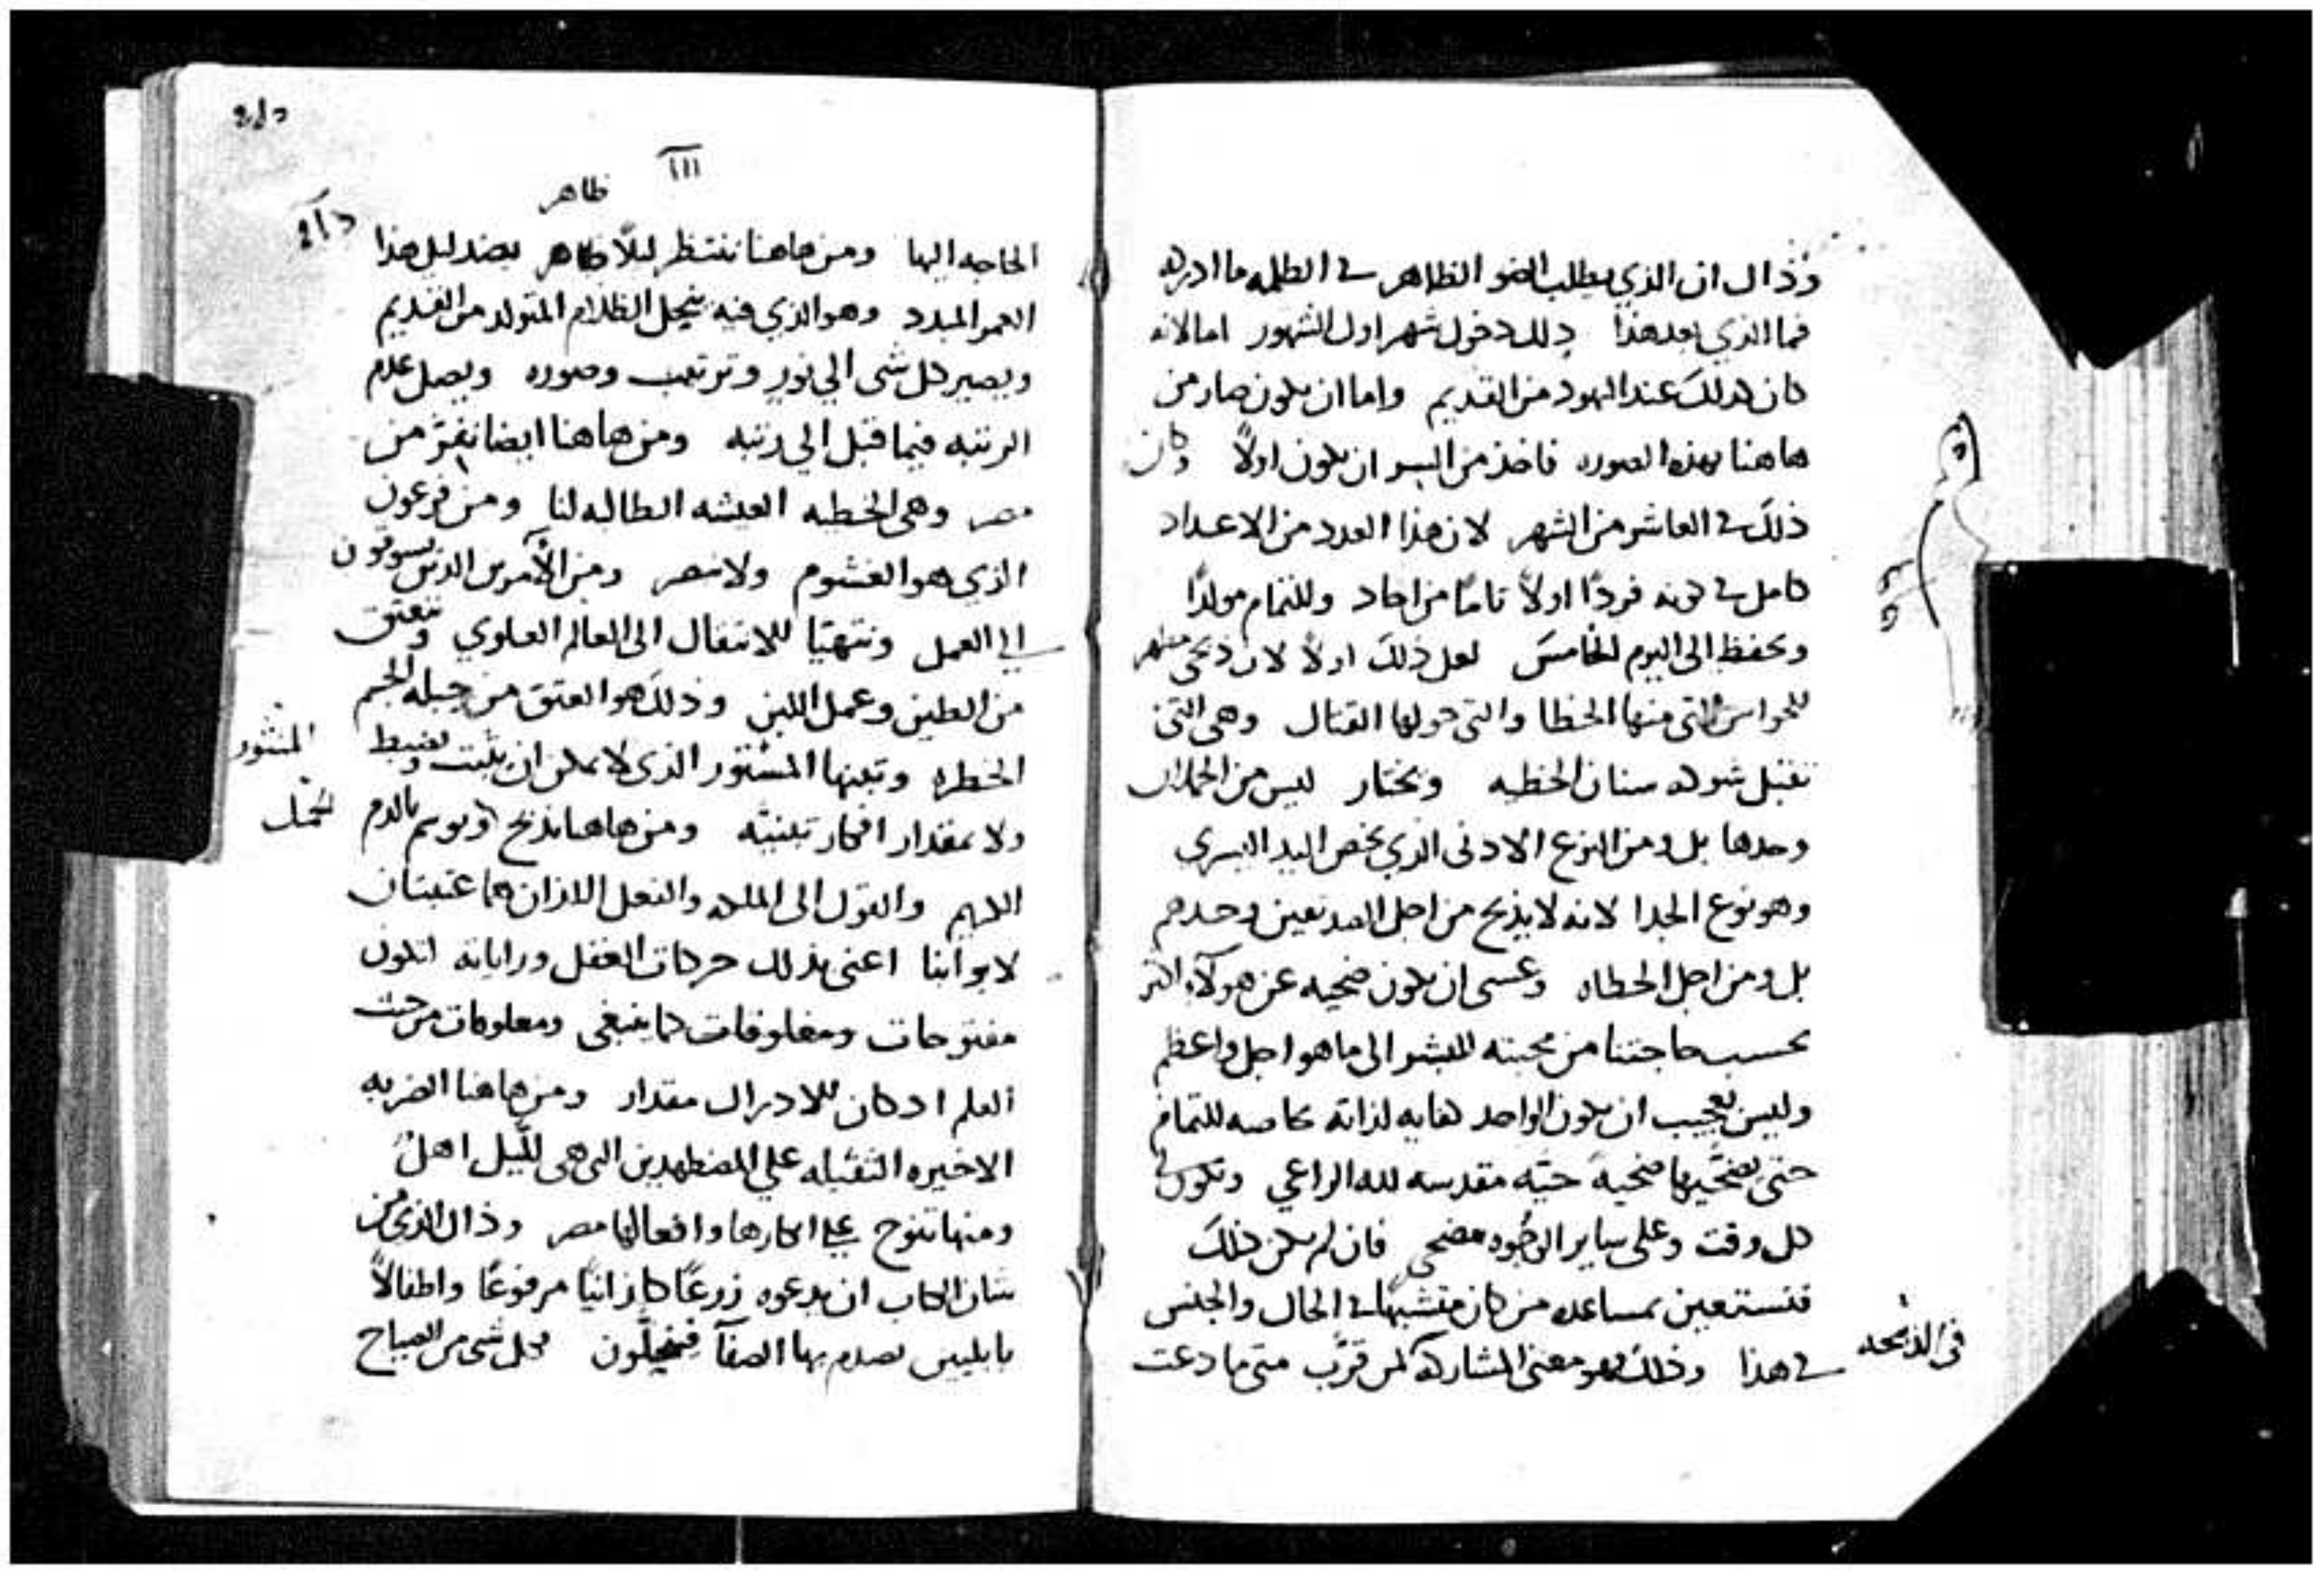 وذاك ان الذي يطلب الضو الظاهر في الظلمه ما ادركه
فما الذي بعد هذا ذلك دخول شهر اول الشهور اما لانه
كان كذلك عند اليهود من القديم واما ان يكون صار من
هاهنا بهذه الصوره فاخذ من السر ان يكون اولاً وكان
ذلك في العاشر من الشهر لان هذا العدد من الاعداد
كامل في كونه فردًا اولاً تامًا من احاد وللتمام مولدًا
ويحفظ الى اليوم الخامس لعل ذلك اولاً لان ذبحي مطهر
للحواس التي منها الخطا والتي حولها القتال وهي التي
تقبل شوكه سنان الخطيه ويختار ليس من الحملان
وحدها بل ومن النوع الادنى الذي يخص اليد اليسرى
وهو نوع الجدا لانه لا يذبح من اجل الصديقين وحدهم
بل ومن اجل الخطاه وعسى ان يكون ضحيه عن هولآء اكثر
بحسب حاجتنا من محبته للبشر الى ما هو اجل واعظم
وليس بعجيب ان يكون الواحد لذاته خاصه للتمام
حتى ضحية حيّه مقدسه لله الراعي وتكون في
كل وقت وعلى ساير الوجوه مضحى فان لم يكن ذلك
فنستعين بمساعده من كان متشبهًا في الحال والجنس
في الذبيحه
في هذا وذلك هو معنى المشاركه لمن قرّب متى ما دعت
III
ظاهر
الحاجه اليها ومن هاهنا ننتظر ليلاً ظاهر بضد ليل هذا
العمر المبدد وهو الذي فيه ينحل الظلام المتولد من القديم
ويصير كل شى الي نور وترتيب وصوره ويصل عدم
الرتبه فيما قبل الي رتبه ومن هاهنا ايضا نفرّ من
مصر وهي الخطيه العبسه الطالبه لنا ومن فرعون
الذي هو الغشوم ولا منصر ومن الآمرين الذين يسوقون
الي العمل ونتهيّا للانتقال الى العالم العلوي ونعتق
من الطين وعمل اللبن وذلك هو العتق من جبله الجسم
الخطره وتبنها المنثور الذى لا يمكن ان يثبت ويضبط
المنثور
ولا بمقدار افكار تبنيّه ومن هاهنا يذبح ويوسم بالدم
الحمل
الكريم والقول الى الملكه والفعل اللذان هما عتبتان
لابوابنا اعنى بذلك حركات العقل وراياته اتكون
مفتوحات ومغلوقات كما ينبغي ومغلوقات من حيث
العلم اذ كان للادراك مقدار ومن هاهنا الضربه
الاخيره الثقيله علي المضطهدين التى هي لليل اهل
ومنها تنوح علي ابكارها وافعالها مصر وذاك الذى من
شان الكتاب ان يدعوه زرعًا كلدانيًا مرفوعًا واطفالاً
بابليين يصدم بها الصفآ فينحلّون فكل شى من الصياح